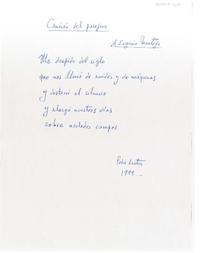 Canción del pasajero
A Eugenio Montejo
Me despido del siglo
que nos llenó de ruidos y de máquinas
y destruyó el silencio
y alargó nuestros días
sobre asolados campos
Pedro Lastra
1999